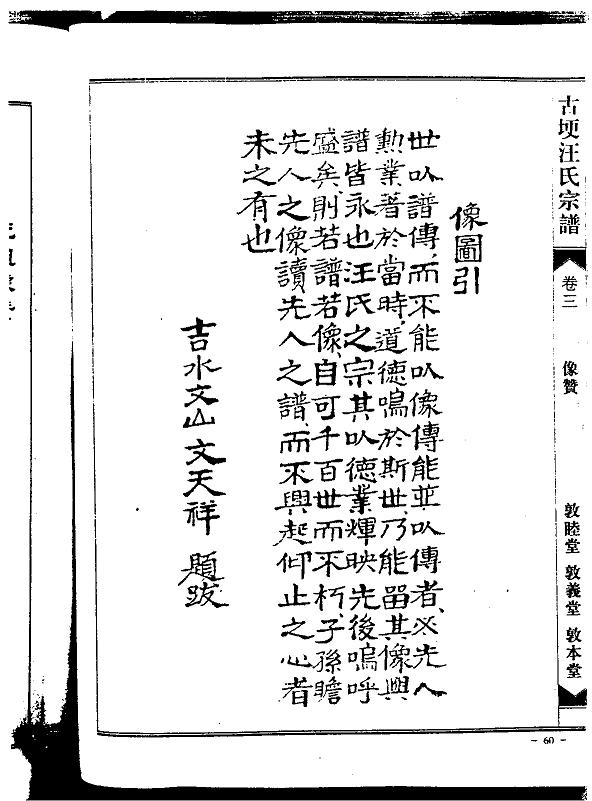 古埂汪氏宗譜
卷三
像贊
敦睦堂 敦義堂 敦本堂
- 60 -
像圖引
世以譜傳而不能以像傳能並以傳者必先人
勲業著於當時道德鳴於斯世乃能留其像與
譜皆永也汪氏之宗其以德業輝映先後嗚呼
盛矣則若譜若像自可千百世而不朽子孫瞻
先人之像讀先人之譜而不興起仰止之心者
未之有也
吉水文山文天祥 題跋